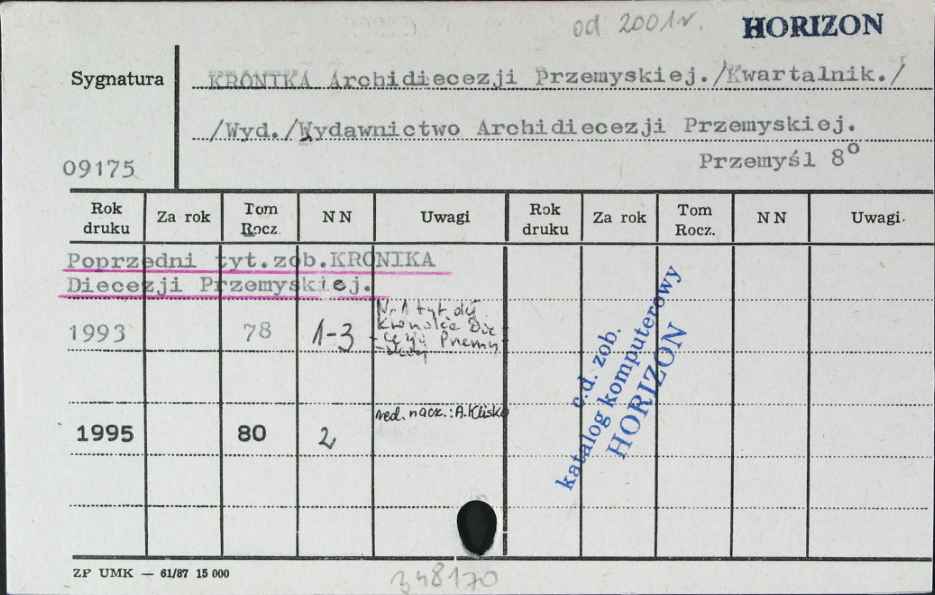 od 2001r. HORIZON
Sygnatura KRONIKA Archidiecezji Przemyskiej./Kwartalnik./
/Wyd./Wydawnictwo Archidiecezji Przemyskiej.
09175 Przemyśl 8°
Rok druku Za rok Tom Rocz. N N Uwagi Rok druku Za rok Tom Rocz. N N Uwagi
Poprzedni tyt.zob.KRONIKA
Diecezji Przemyskiej.
1993 78 1-3
Nr 1 tyt. dył
1995 80 2 red. nacz.: A. Klisko
c.d. zob.
katalog komputerowy
HORIZON
ZP UMK — 61/87 15 000
348170